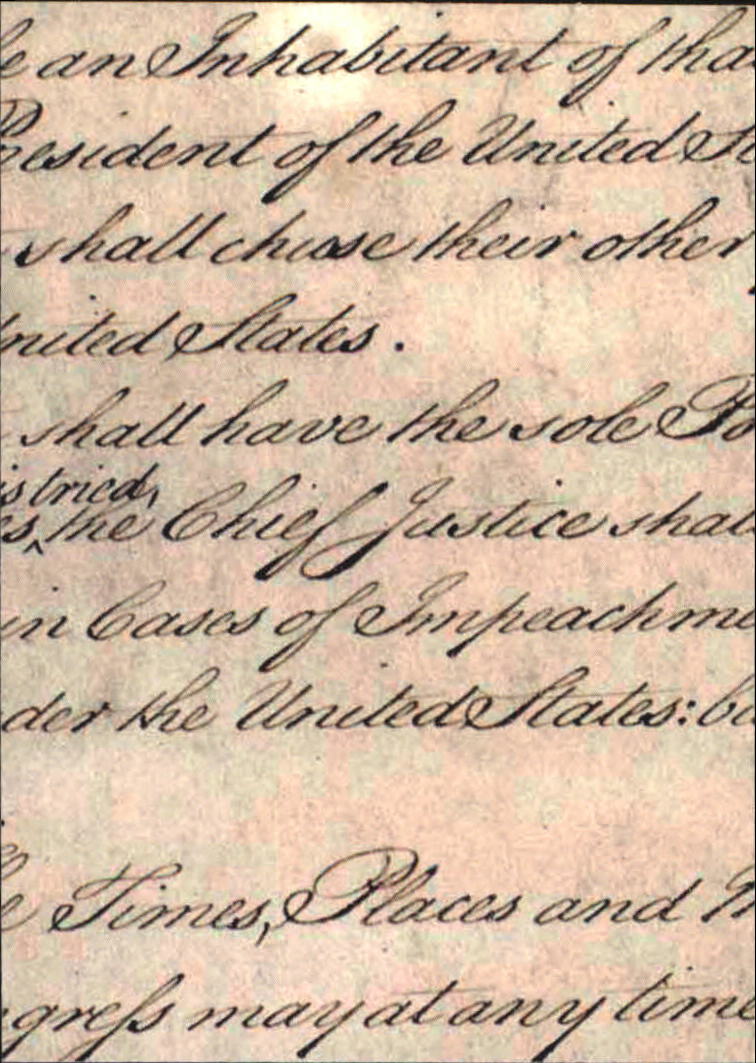 e an Inhabitant of tha
President of the United Sta
shall chuse their other
United States.
shall have the sole Po
is tried,
es, the Chief Justice shal
in Cases of Impeachme
der the United States: bu
e Times, Places and M
ngress may at any time